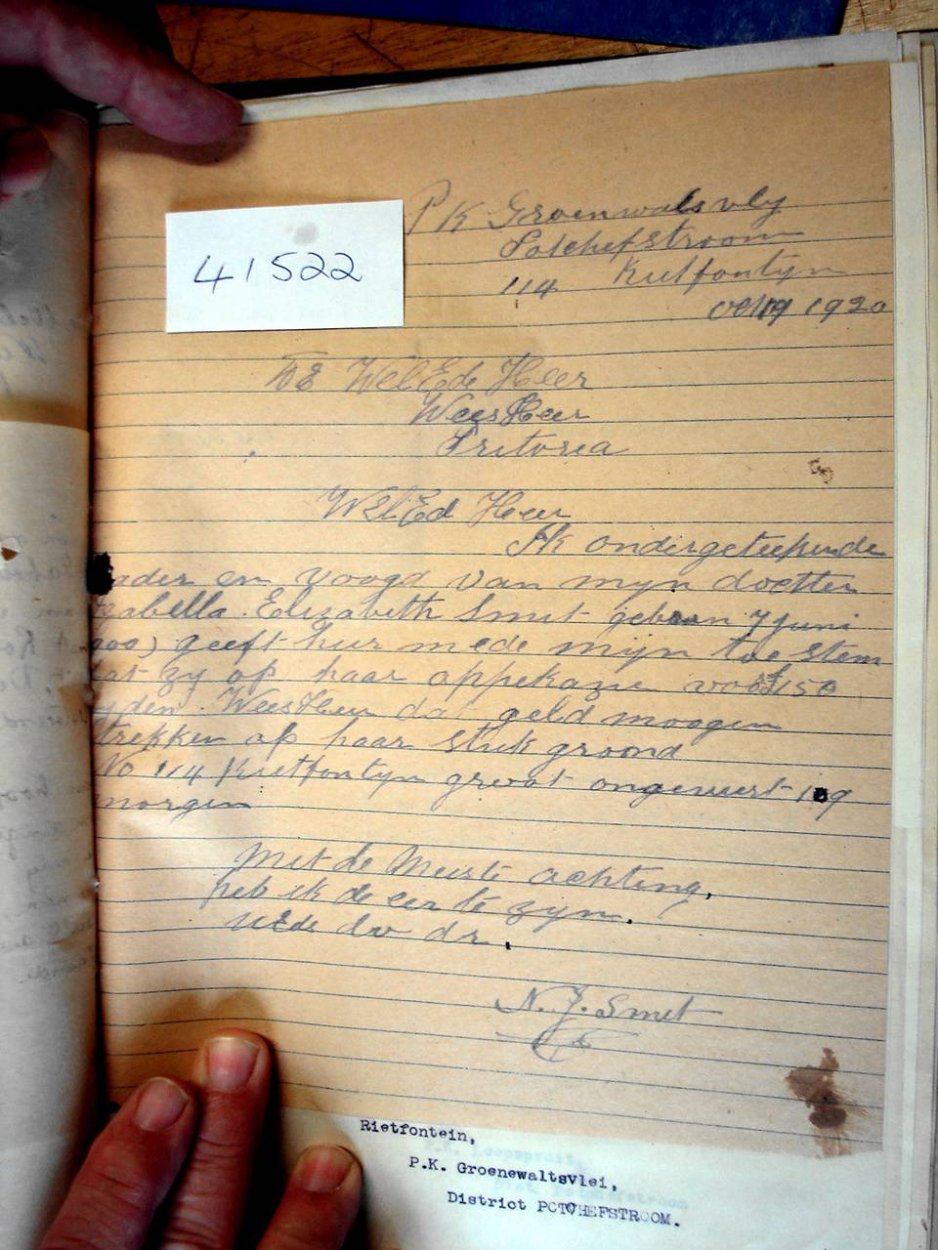 41522
P K Groenwals vly
Potchefstroom
114 Rietfontyn
1920
WelEde Heer
WeesHeer
Pritoria
WelEd Heer
Ik ondergeteekende
ader en Voogd van mijn dochter
zabella. Elizabeth Smit geboren 7 Juni
900) geeft hier mede mijn toe stem
dat zy op haar appekazie voor £150
yden. WeesHeer dat geld moogen
trekken op haar stuk grond
No 114 Rietfontyn groot ongeveert 109
morgen
Met de Meiste achting,
heb ik de eer te zyn.
UEde dw dr.
N. J. Smit
Rietfontein,
P.K. Groenewaltsvlei,
District POTCHEFSTROOM.